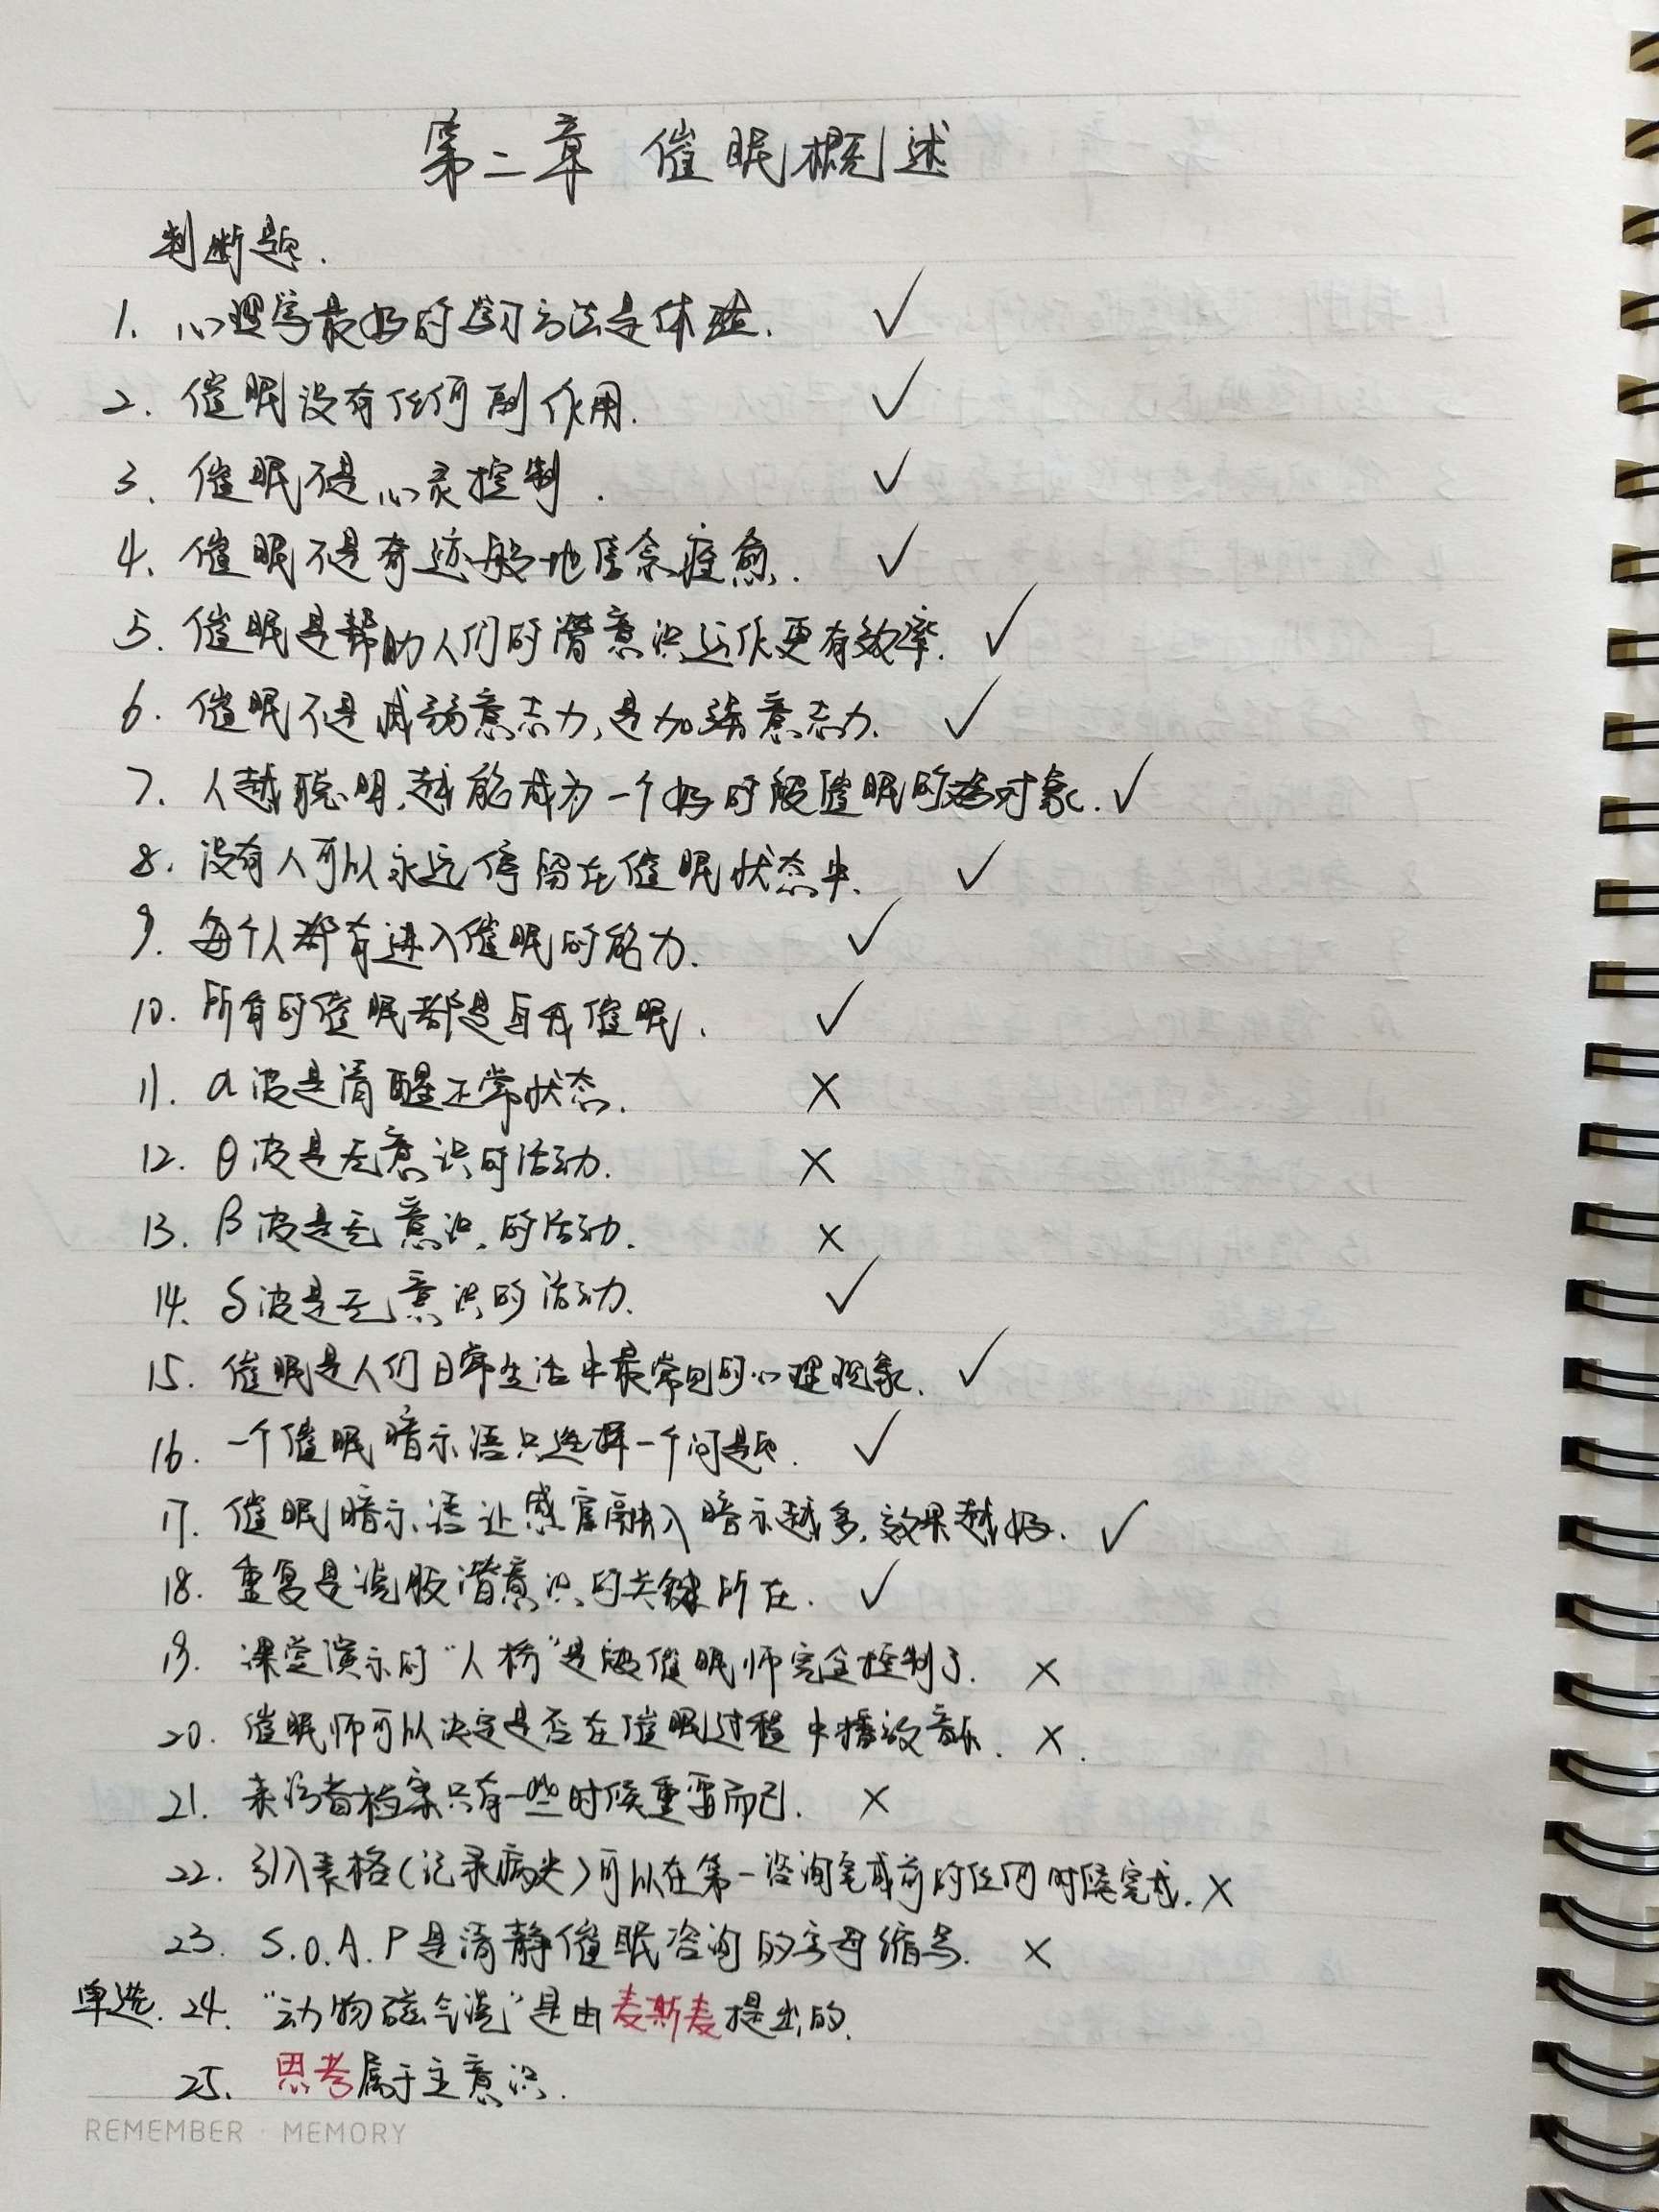 第二章 催眠概述
判断题.
1. 心理学最好的学习方法是体验. ✓
2. 催眠没有任何副作用. ✓
3. 催眠不是心灵控制. ✓
4. 催眠不是奇迹般地居余痊愈. ✓
5. 催眠是帮助人们的潜意识运作更有效率. ✓
6. 催眠不是减弱意志力,是加强意志力. ✓
7. 人越聪明,越能成为一个好的被催眠的对象. ✓
8. 没有人可以永远停留在催眠状态中. ✓
9. 每个人都有进入催眠的能力. ✓
10. 所有的催眠都是自我催眠. ✓
11. α波是清醒正常状态. ×
12. θ波是无意识的活动. ×
13. β波是无意识的活动. ×
14. δ波是无意识的活动. ✓
15. 催眠是人们日常生活中最常见的心理现象. ✓
16. 一个催眠暗示语只选择一个问题. ✓
17. 催眠暗示语让感官融入暗示越多,效果越好. ✓
18. 重复是说服潜意识的关键所在. ✓
19. 课堂演示的“人桥”是被催眠师完全控制了. ×
20. 催眠师可以决定是否在催眠过程中播放音乐. ×.
21. 来访者档案只有一些时候重要而已. ×
22. 引入表格(记录病史)可以在第一咨询完成前的任何时候完成. ×
23. S.O.A.P是清静催眠咨询的字母缩写. ×
单选. 24. “动物磁气说”是由麦斯麦提出的.
25. 思考属于主意识.
REMEMBER · MEMORY